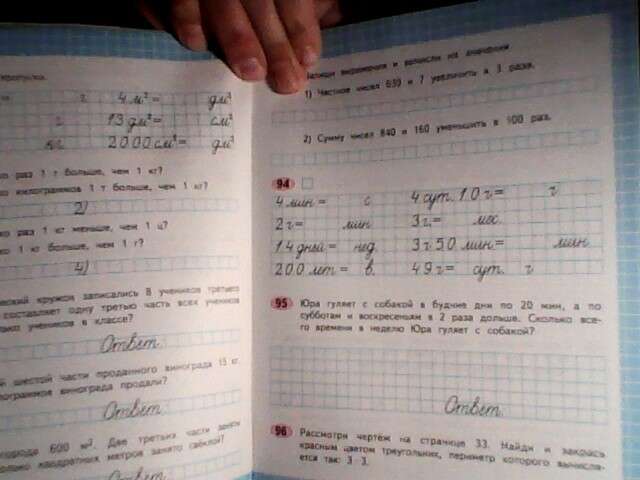 = г 4 м² = дм²
г 13 дм² = см²
кг. 2000 см² = дм²
раз 1 т больше, чем 1 кг?
килограммов 1 т больше, чем 1 кг?
2)
раз 1 кг меньше, чем 1 ц?
1 кг больше, чем 1 г?
4)
кружок записались 8 учеников третьего
составляет одну третью часть всех учеников
учеников в классе?
Ответ.
шестой части проданного винограда 15 кг.
винограда продали?
Ответ
600 м². Две третьих части
квадратных метров занято свёклой?
Ответ
Запиши выражения и вычисли их значения.
1) Частное чисел 630 и 7 увеличить в 3 раза.
2) Сумму чисел 840 и 160 уменьшить в 100 раз.
94
4 мин = с 4 сут. 10 ч = ч
2 ч = мин 3 г. = мес.
14 дней = нед. 3 ч 50 мин = мин
200 лет = в. 49 ч = сут. ч
95 Юра гуляет с собакой в будние дни по 20 мин, а по
субботам и воскресеньям в 2 раза дольше. Сколько все-
го времени в неделю Юра гуляет с собакой?
Ответ.
96 Рассмотри чертёж на странице 33. Найди и закрась
красным цветом треугольник, периметр которого вычисля-
ется так: 3 · 3.